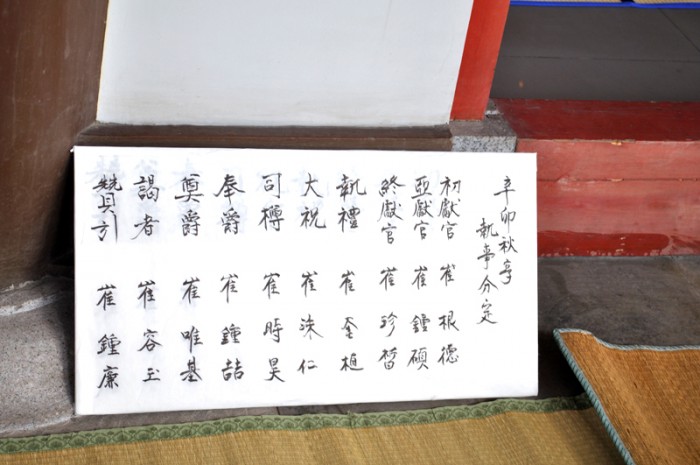 辛卯秋享
執事分定
初獻官 崔根德
亞獻官 崔鍾碩
終獻官 崔珍皙
執禮 崔奎植
大祝 崔洙仁
司樽 崔時昊
奉爵 崔鍾喆
奠爵 崔唯基
謁者 崔容玉
贊引 崔鍾廉